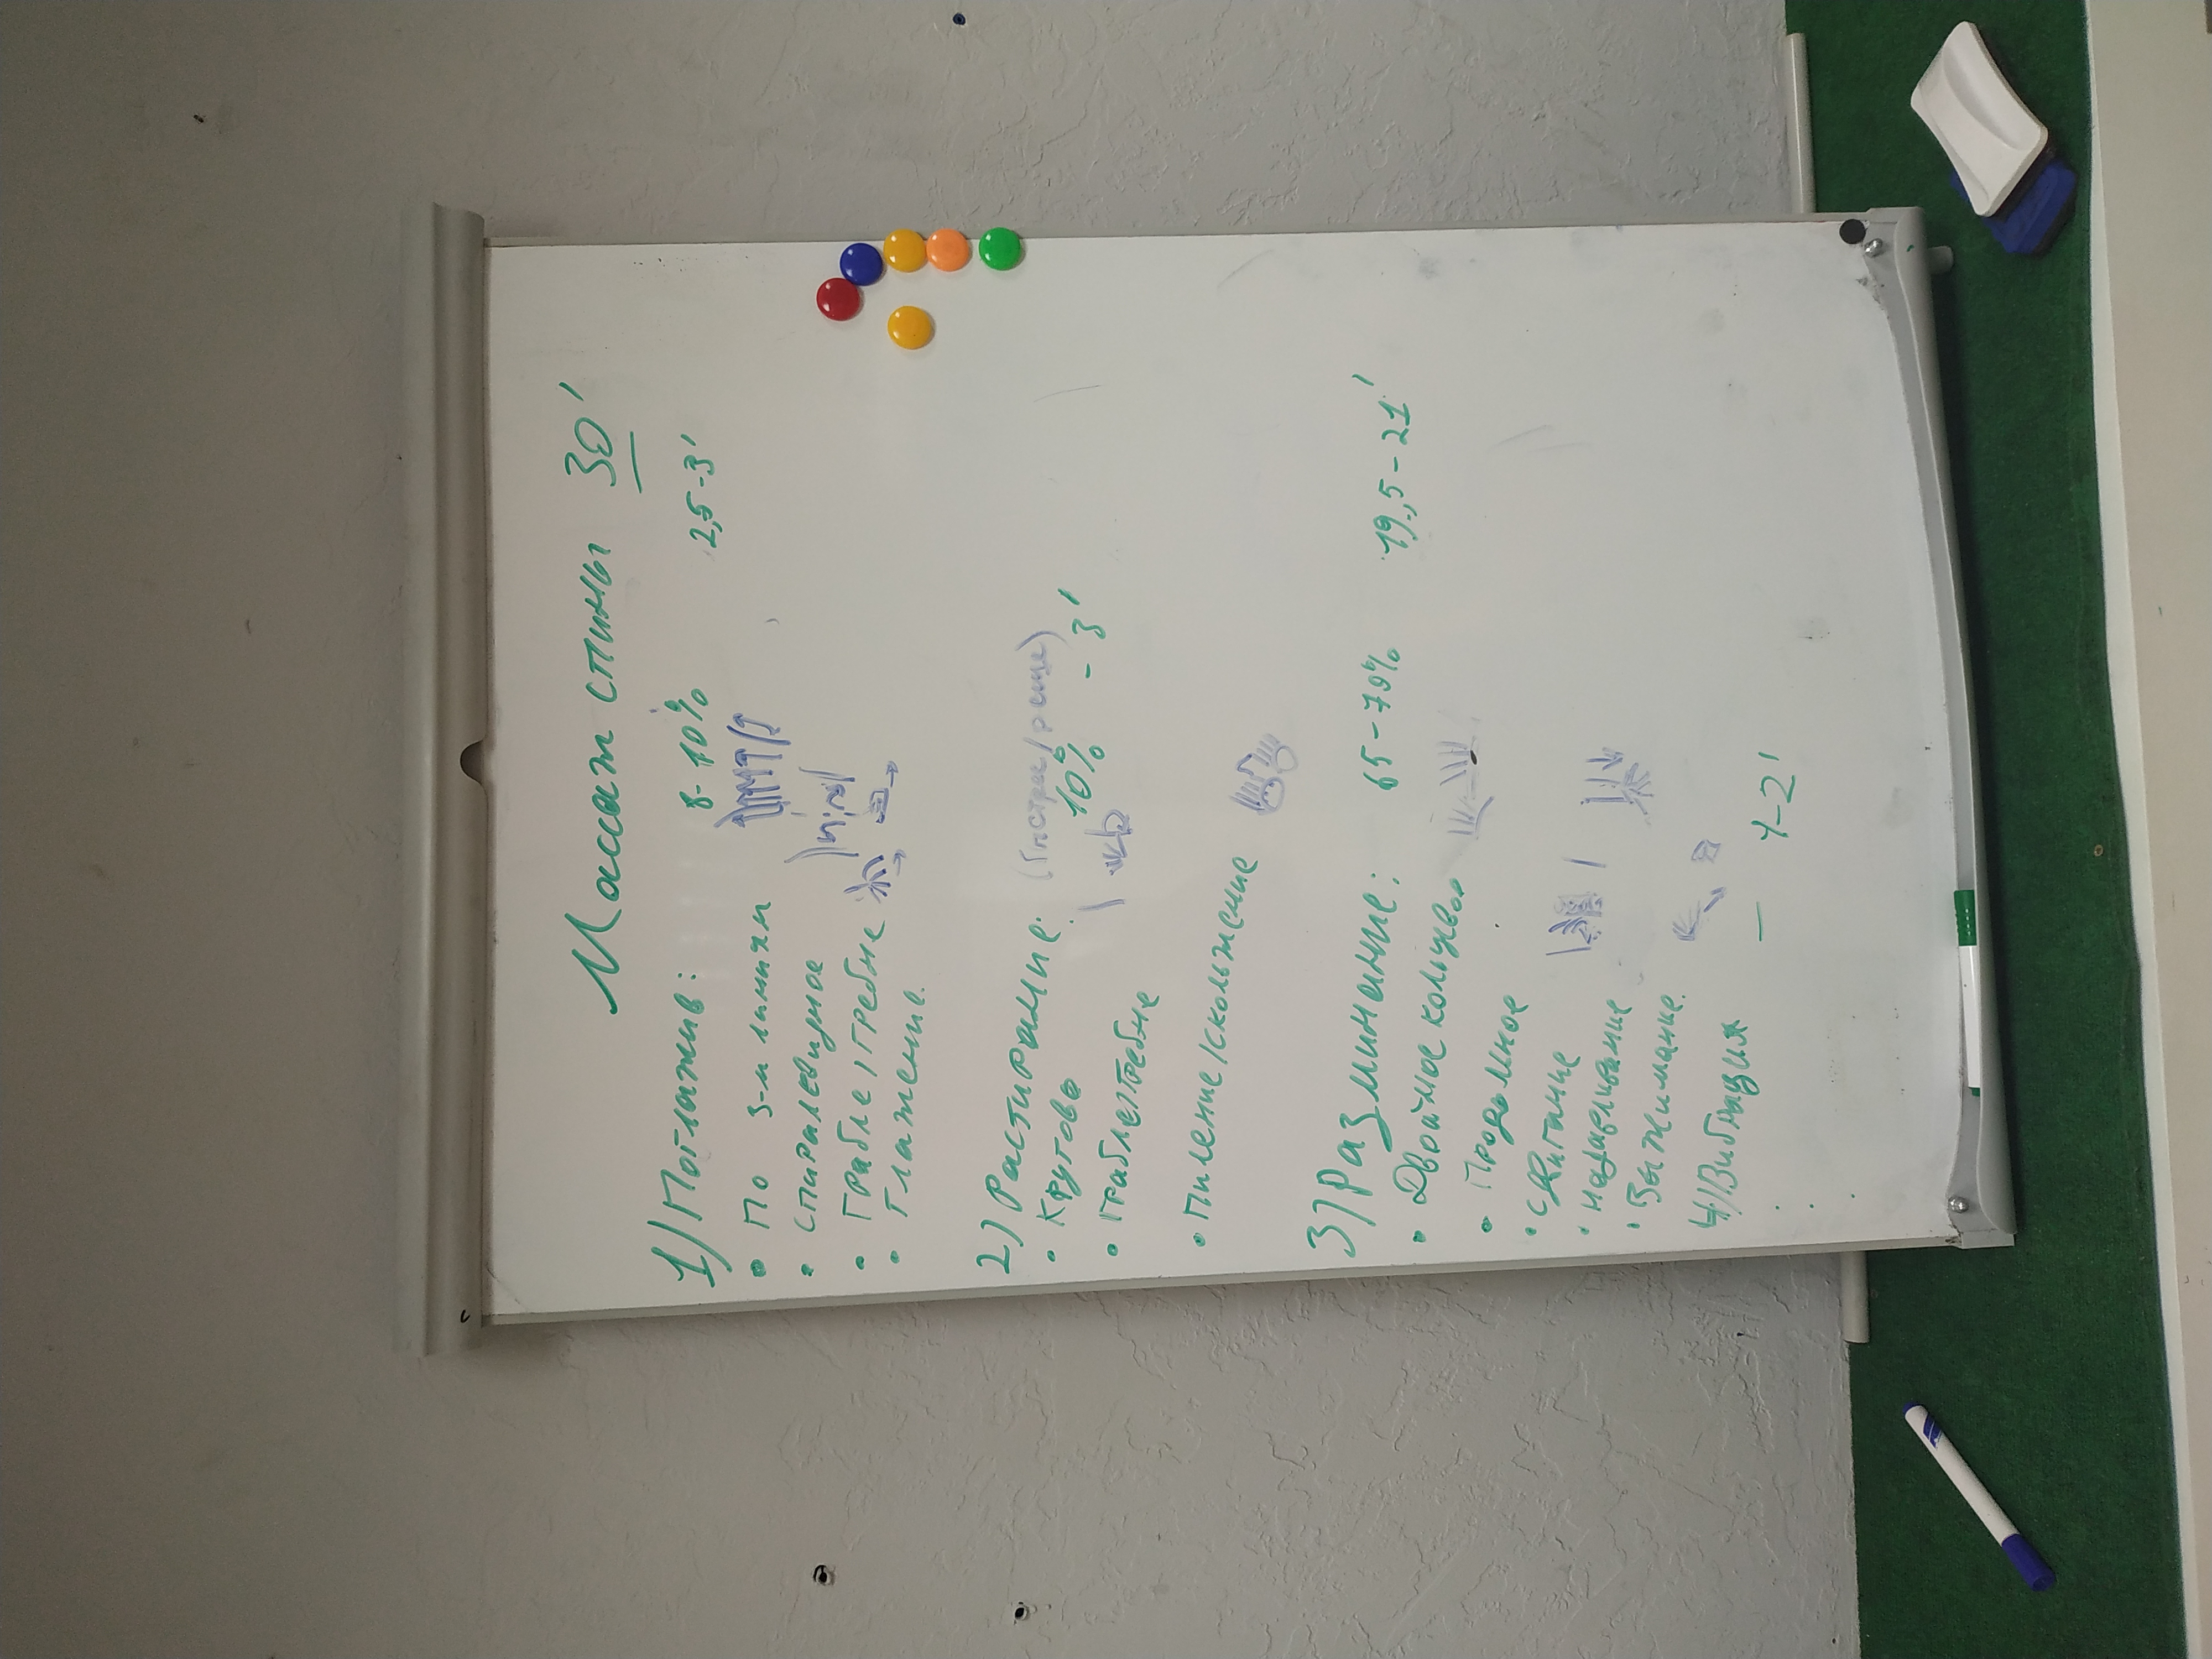 Массаж спины 30'
1) Поглажив: 8-10% 2,5-3'
• По 3-м линиям
• Спиралевидное
• Грабле/гребне
• Глажение.
2) Растирание: (быстрее/резче)
• Кругово 10% - 3'
• Грабле/гребне
• Пиление/скольжение
3) Разминание: 65-70% 19,5-21'
• Двойное кольцевое
• Продольное
• Сдвигание
• Надавливание
• Выжимание.
4) Вибрация — 1-2'